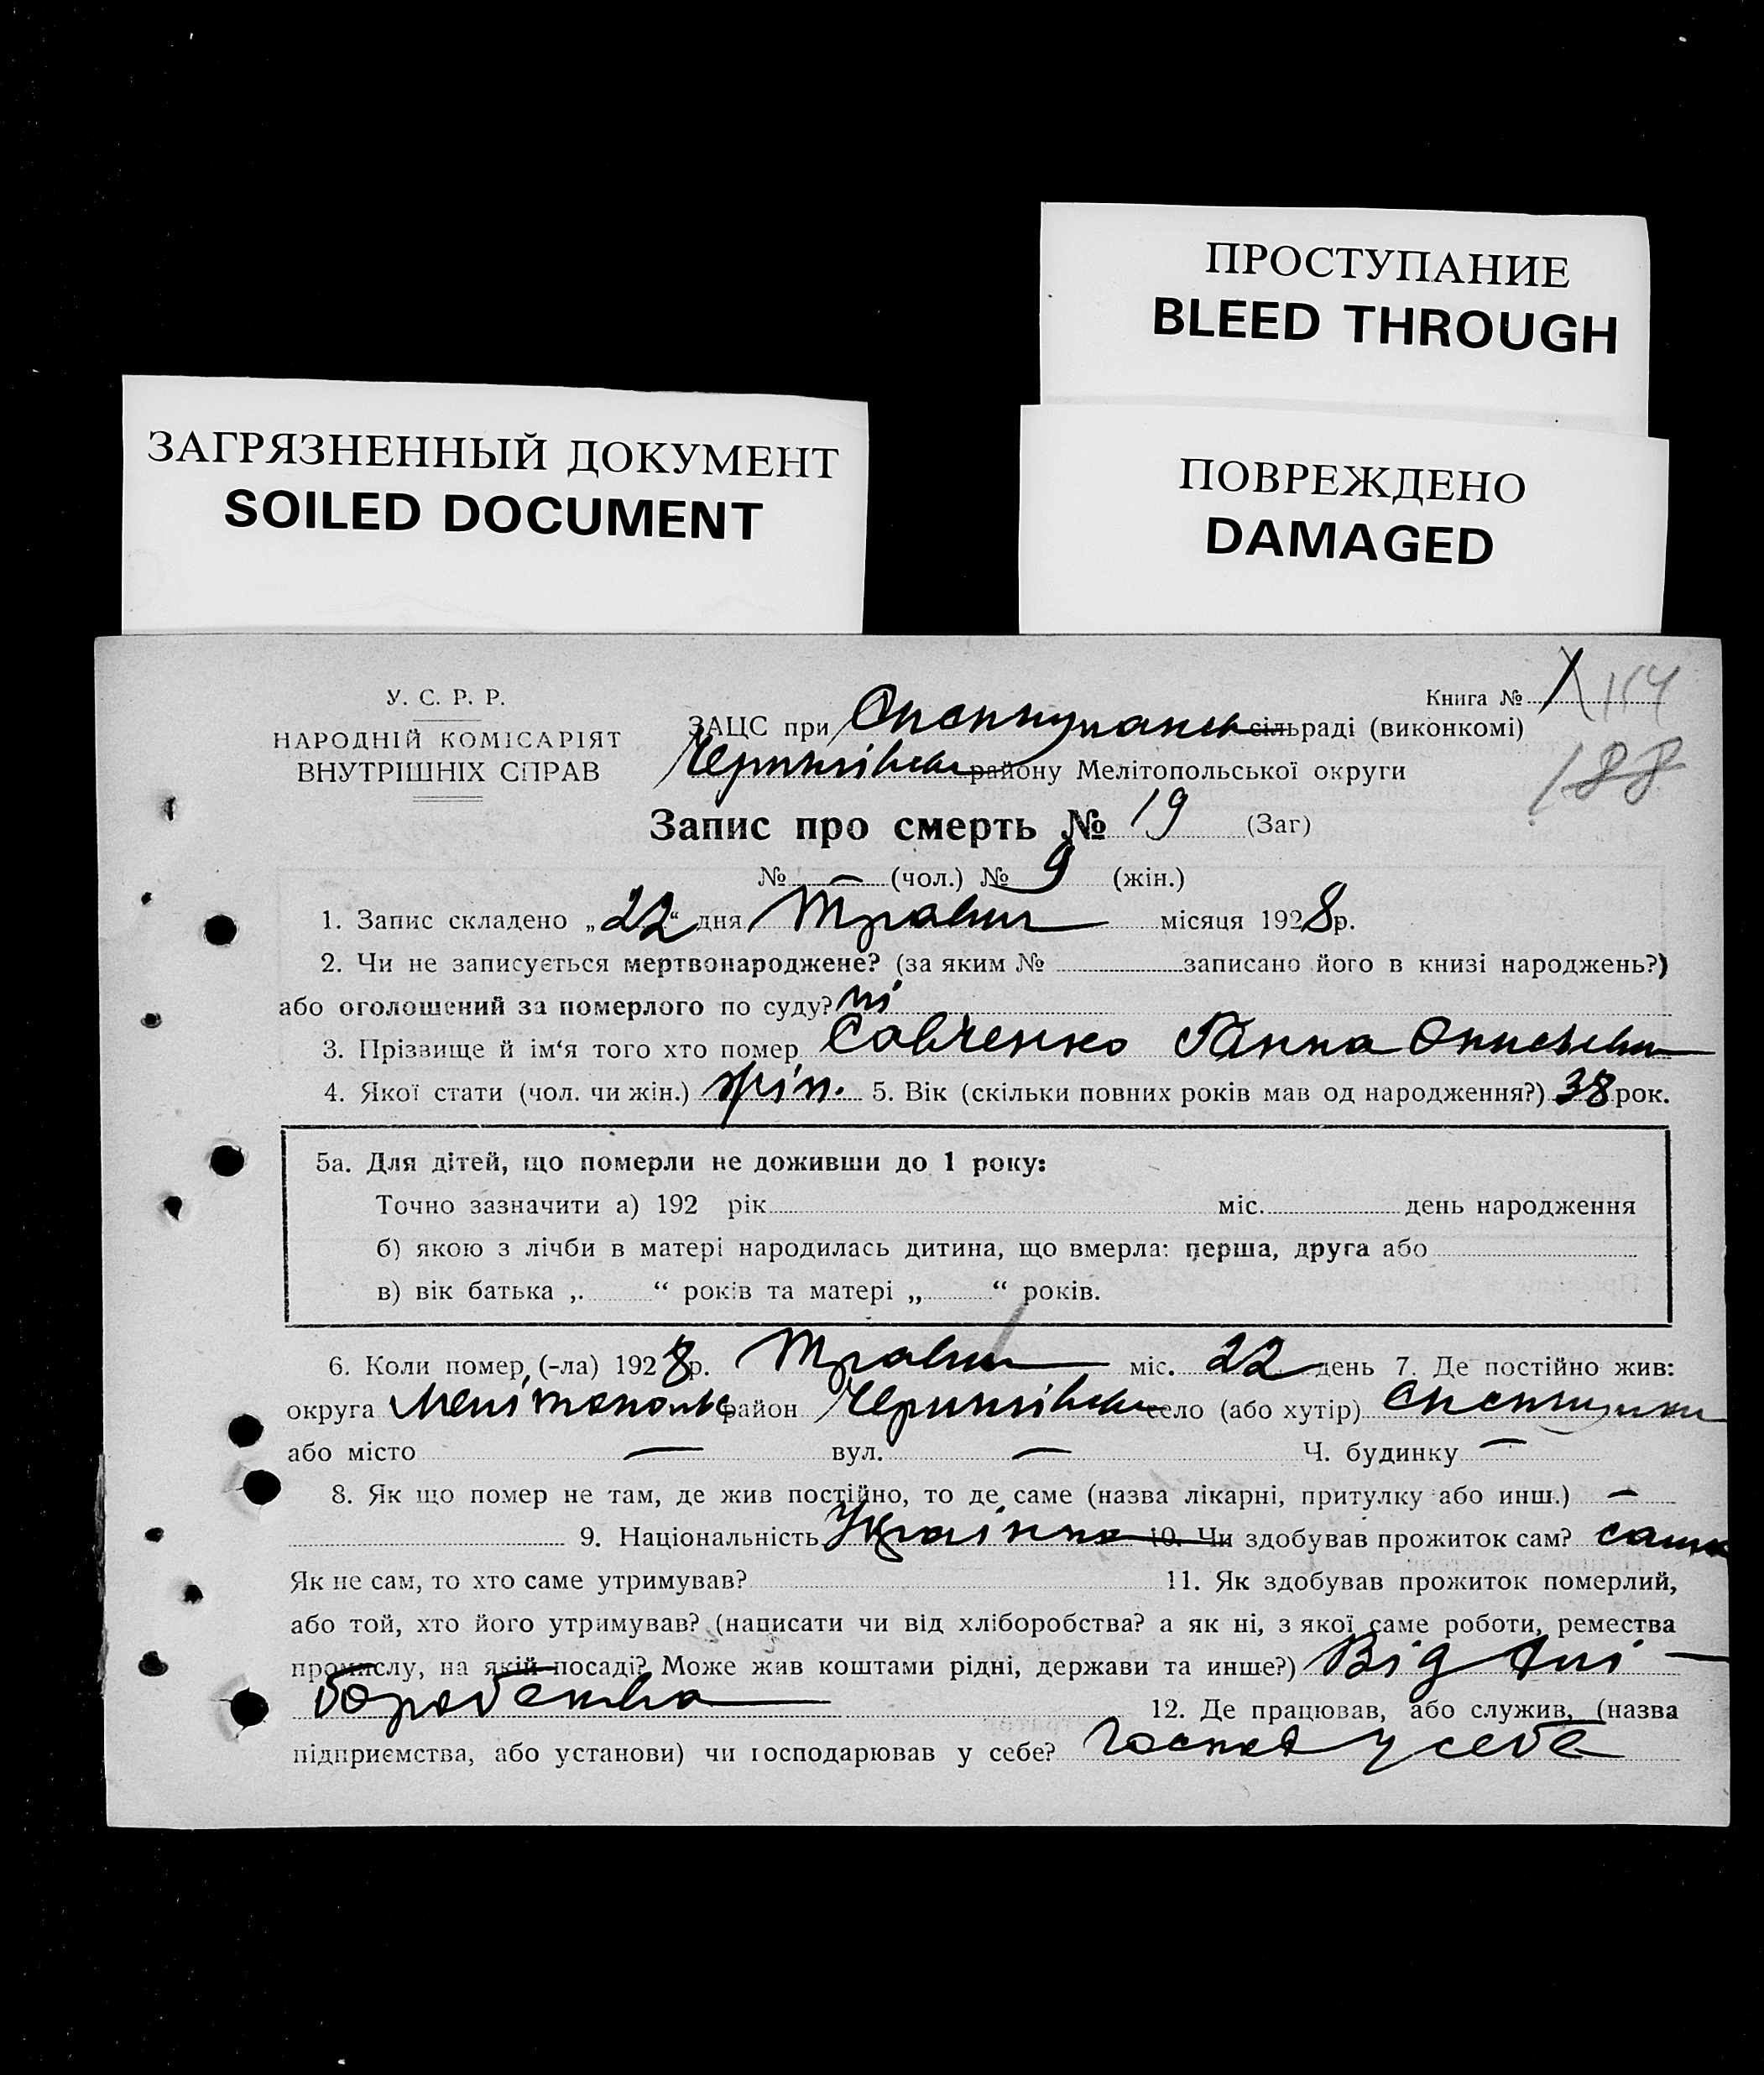 ПРОСТУПАНИЕ
BLEED THROUGH
ЗАГРЯЗНЕННЫЙ ДОКУМЕНТ
SOILED DOCUMENT
ПОВРЕЖДЕНО
DAMAGED
У. С. Р. Р.
НАРОДНІЙ КОМІСАРІЯТ
ВНУТРІШНІХ СПРАВ
Книга № 1
188
ЗАЦС при сільраді (виконкомі)
району Мелітопольської округи
Запис про смерть № 19 (Заг)
№ — (чол.) № 9 (жін.)
1. Запис складено „22“ дня Травня місяця 1928р.
2. Чи не записується мертвонароджене? (за яким № записано його в книзі народжень?)
або оголошений за померлого по суду? ні
3. Прізвище й ім‘я того хто помер Савченко Ганна
4. Якої стати (чол. чи жін.) жін. 5. Вік (скільки повних років мав од народження?) 38 рок.
5а. Для дітей, що померли не доживши до 1 року:
Точно зазначити а) 192 рік міс. день народження
б) якою з лічби в матері народилась дитина, що вмерла: перша, друга або
в) вік батька „ “ років та матері „ “ років.
6. Коли помер, (-ла) 1928р. Травня міс. 22 день 7. Де постійно жив:
округа Мелітополь район село (або хутір)
або місто — вул. — Ч. будинку —
8. Як що помер не там, де жив постійно, то де саме (назва лікарні, притулку або инш.) —
9. Національність Українка 10. Чи здобував прожиток сам? сама
Як не сам, то хто саме утримував? 11. Як здобував прожиток померлий,
або той, хто його утримував? (написати чи від хліборобства? а як ні, з якої саме роботи, ремества
промислу, на якій посаді? Може жив коштами рідні, держави та инше?) Від хлі-
боробства 12. Де працював, або служив, (назва
підприємства, або установи) чи господарював у себе? у себе